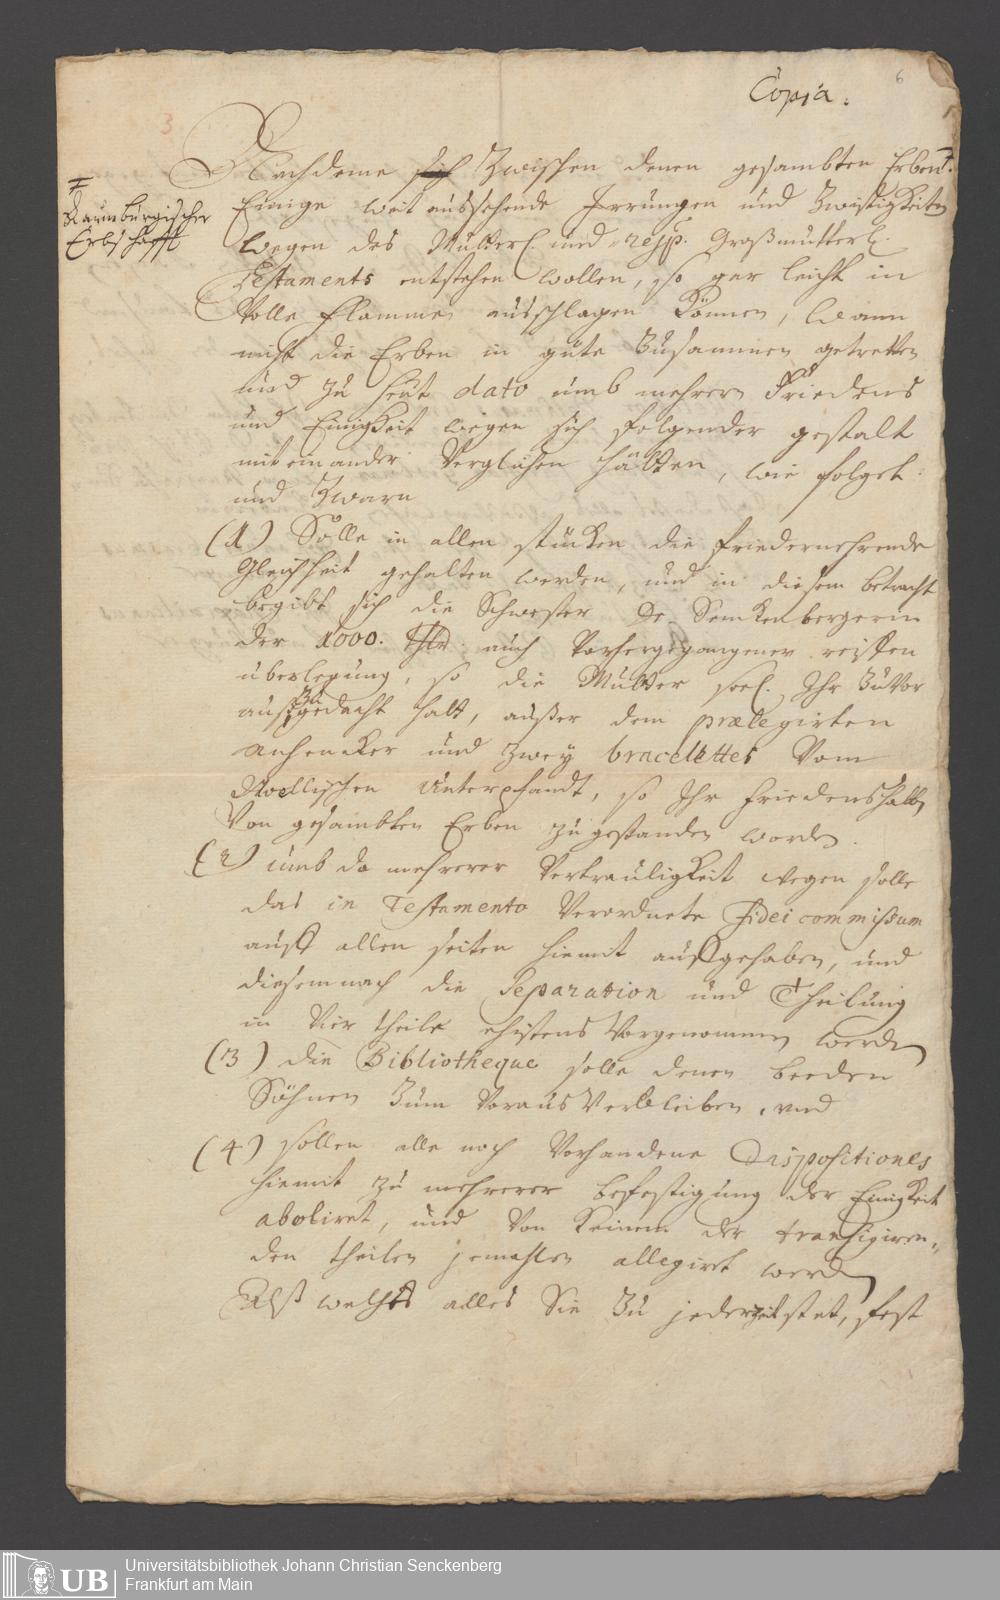 Copia.
6
3
Nachdeme sich Zwischen denen gesambten Erben ‡.
‡
Raumburgischer
Erbschafft
Einige weit aussehende Irrungen und Zwistigkeiten
wegen des Mutterl. und resp. Großmutterl.
Testaments entstehen wollen, so gar leicht in
Volle Flammen ausschlagen können, wann
nicht die Erben in güte Zusammen getretten
und zu heut dato umb mehrern Friedens
und Einigkeit wegen sich folgender gestalt
mit einander Verglichen hätten, wie folget:
und Zwarn
(1) Solle in allen stücken die friedernehrende
Gleichheit gehalten werden, und in diesem betracht
begibt sich die Schwester De Senckenbergerin
der 1000. Thlr. auch Vorhergegangener reiffen
uberlegung, so die Mutter seel. Ihr Zuvor
außzugedacht hatt, außer dem prælegirten
anhencker und Zwey bracelettes Vom
Unterpfandt, so Ihr friedenshalb
Von gesambten Erben zu gestanden worden.
(2) umb da mehrerer Vertrauligkeit wegen solle
das in Testamento Verordnete Fidei commissum
auff allen seiten hiemit auffgehaben, und
diesemnach die Separation und Theilung
in Vier theile ehistens Vorgenommen werden
(3) die Bibliotheque solle denen beeden
Söhnen Zum Voraus Verbleiben, und
(4) sollen alle noch Vorhandene Dispositiones
hiemit zu mehrerer befestigung der Einigkeit
aboliret, und Von keinem der transigiren-
den theilen jemahlen allegirt werden
Alß welches alles Sie Zu jederzeit stet, fest
UB
Universitätsbibliothek Johann Christian Senckenberg
Frankfurt am Main